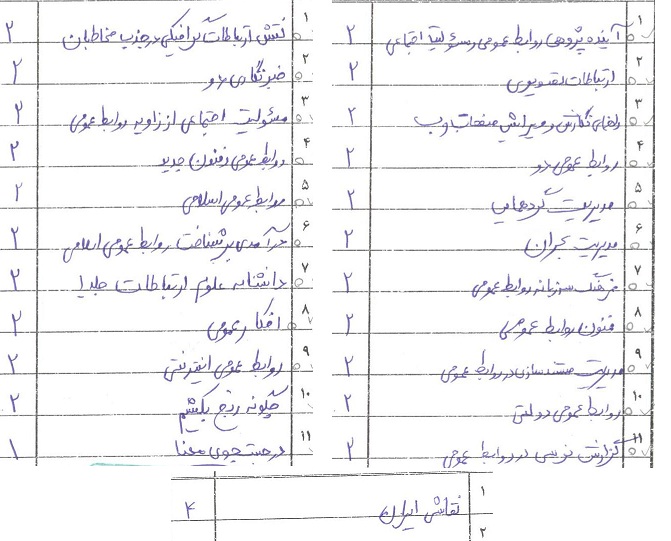 ۱ آینده پژوهی روابط عمومی و مسئولیت اجتماعی ۲
۲ ارتباطات تصویری ۲
۳ راهنمای نگارش و ویرایش صفحات وب ۲
۴ روابط عمومی دو ۲
۵ مدیریت گردهمایی ۲
۶ مدیریت بحران ۲
۷ فرهنگ سازمانی روابط عمومی ۲
۸ فنون روابط عمومی ۲
۹ مدیریت مستندسازی در روابط عمومی ۲
۱۰ روابط عمومی دولتی ۲
۱۱ گزارش نویسی در روابط عمومی ۲
۱ نقش ارتباطات گرافیکی در جذب مخاطبان ۲
۲ خبرنگاری دو ۲
۳ مسئولیت اجتماعی از زاویه روابط عمومی ۲
۴ روابط عمومی و فنون جدید ۲
۵ روابط عمومی اسلامی ۲
۶ درآمدی بر شناخت روابط عمومی اسلامی ۲
۷ دانشنامه علوم ارتباطات جلد ۱ ۲
۸ افکار عمومی ۲
۹ روابط عمومی اینترنتی ۲
۱۰ چگونه رنج بکشیم ۲
۱۱ در جستجوی معنا ۱
۱ نقاشی ایران ۴
۲